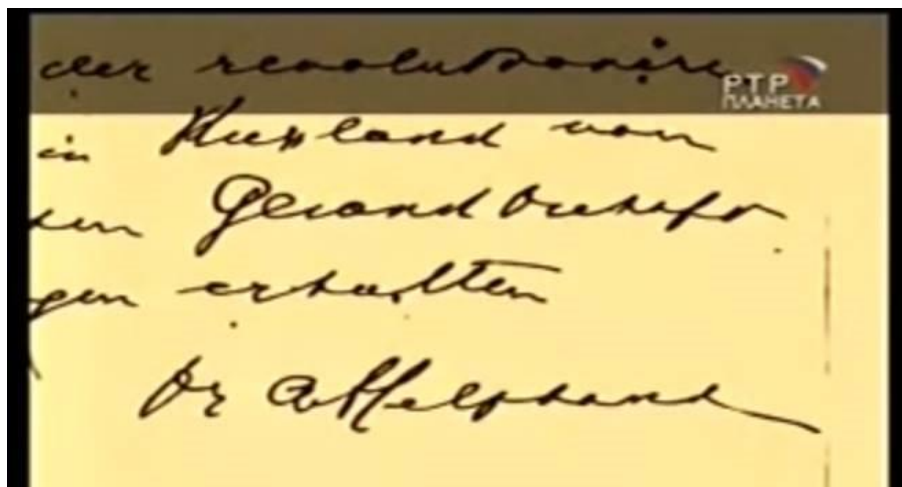 der revolutionären
РТР
ПЛАНЕТА
in Russland von
chen Gesandtschaft
gen erhalten
Dr A Helphand